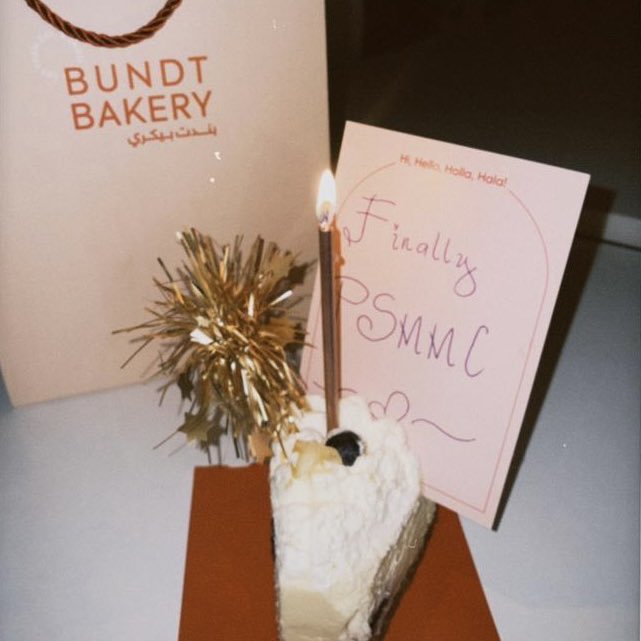 BUNDT
BAKERY
بندت بيكري
Hi, Hello, Holla, Hala!
Finally
PSMMC